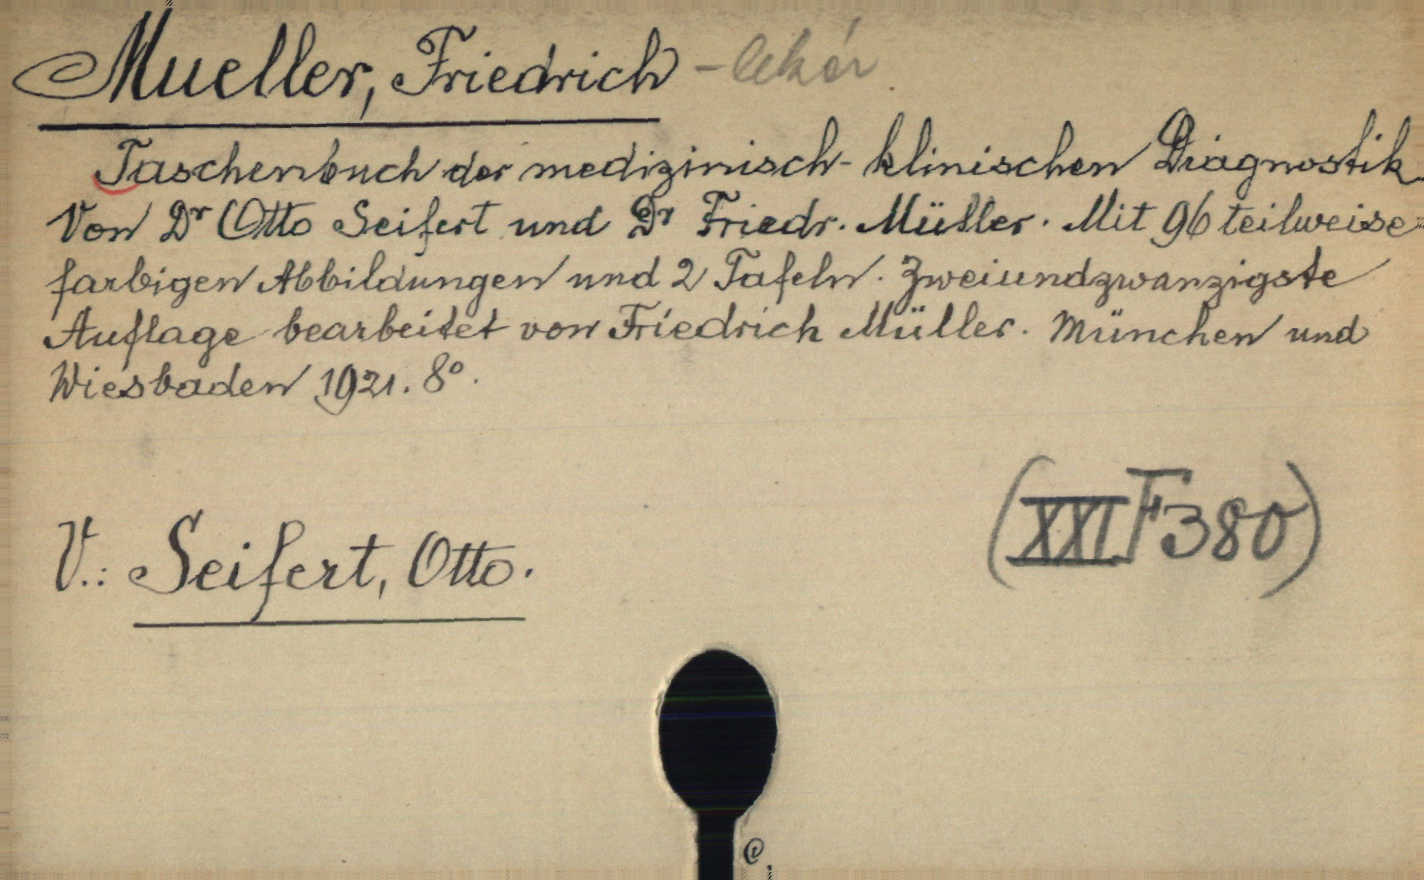 Mueller, Friedrich - lekár
Taschenbuch der medizinisch-klinischen Diagnostik.
Von Dr Otto Seifert und Dr Friedr. Müller. Mit 96 teilweise
farbigen Abbildungen und 2 Tafeln. Zweiundzwanzigste
Auflage bearbeitet von Friedrich Müller. München und
Wiesbaden 1921. 8°.
(XXI F 380)
V.: Seifert, Otto.
C.